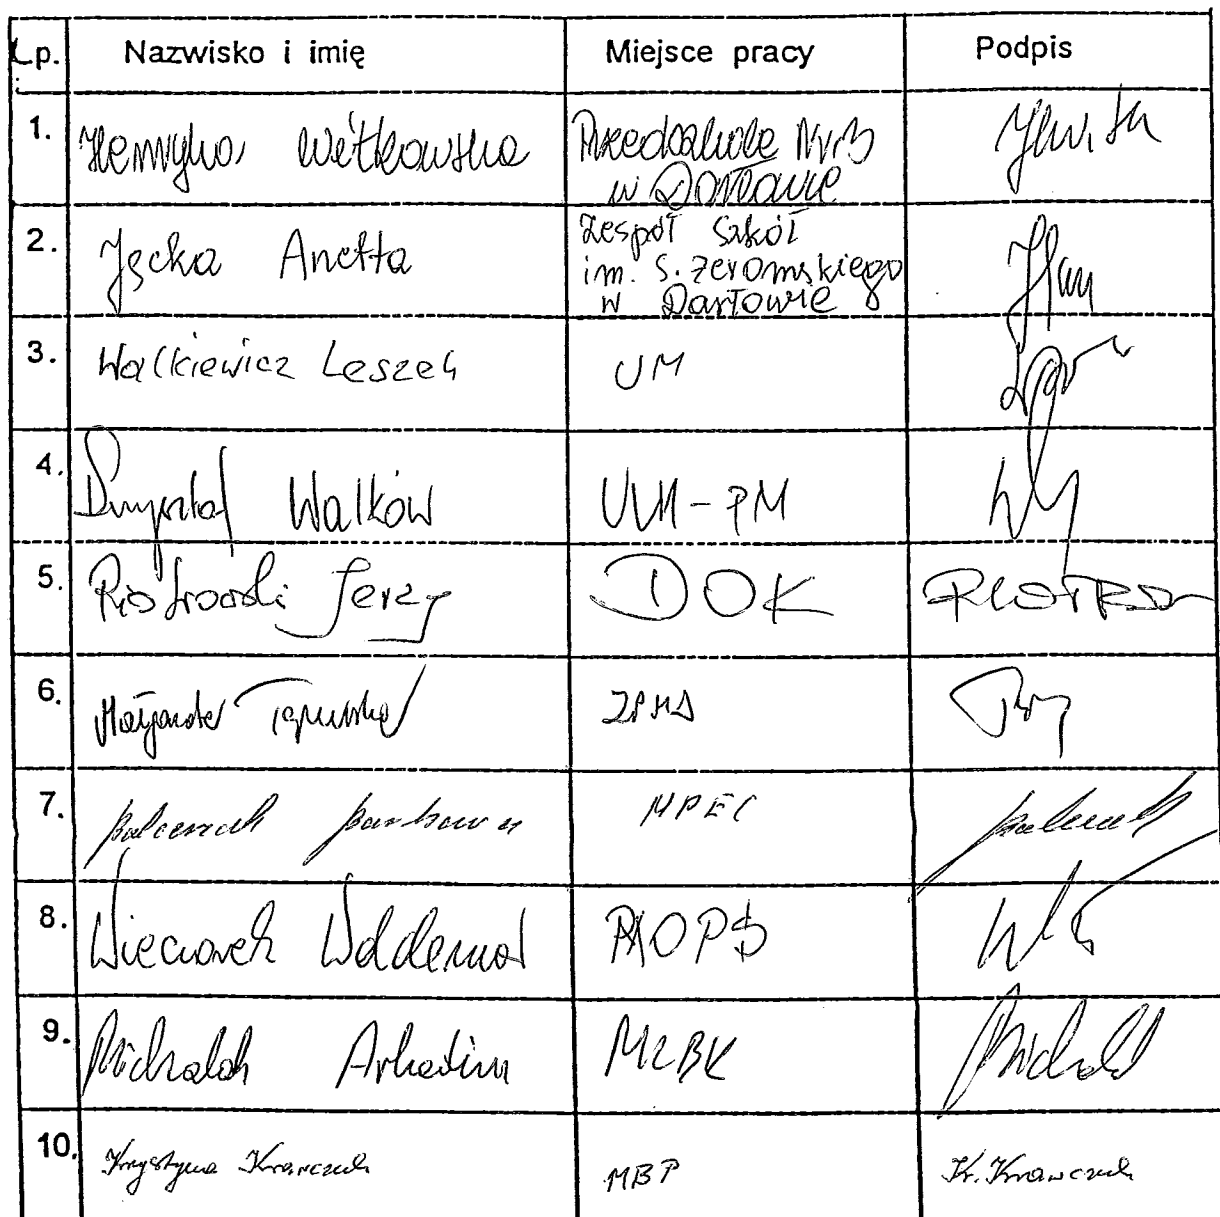 Lp. Nazwisko i imię Miejsce pracy Podpis
1. Henryka Witkowska Przedszkole Nr 3
w Darłowie
2. Jęcka Anetta Zespół Szkół
im. S. Żeromskiego
w Darłowie
3. Walkiewicz Leszek UM
4. Krzysztof Walków UM-PM
5. Piotrowski Jerzy DOK
6. Małgorzata
7. MPEC
8. Wieczorek Waldemar MOPS
9. Michalak Arkadiusz MZBK Michalak
10. Krystyna Krawczuk MBP Kr. Krawczuk